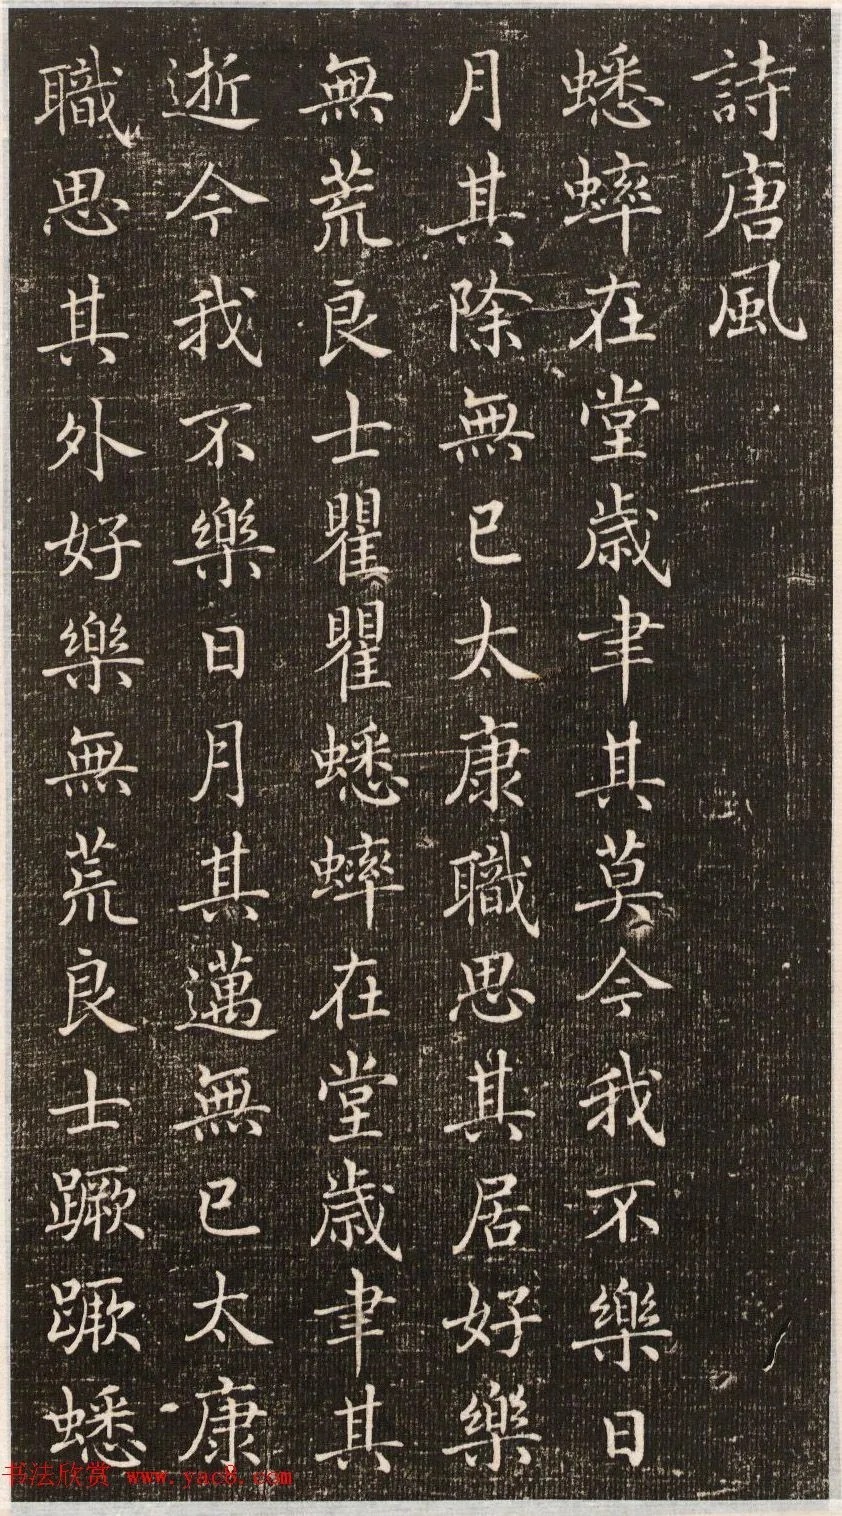 詩唐風
蟋蟀在堂歲聿其莫今我不樂日
月其除無已太康職思其居好樂
無荒良士瞿瞿蟋蟀在堂歲聿其
逝今我不樂日月其邁無已太康
職思其外好樂無荒良士蹶蹶蟋
书法欣赏 www.yac8.com